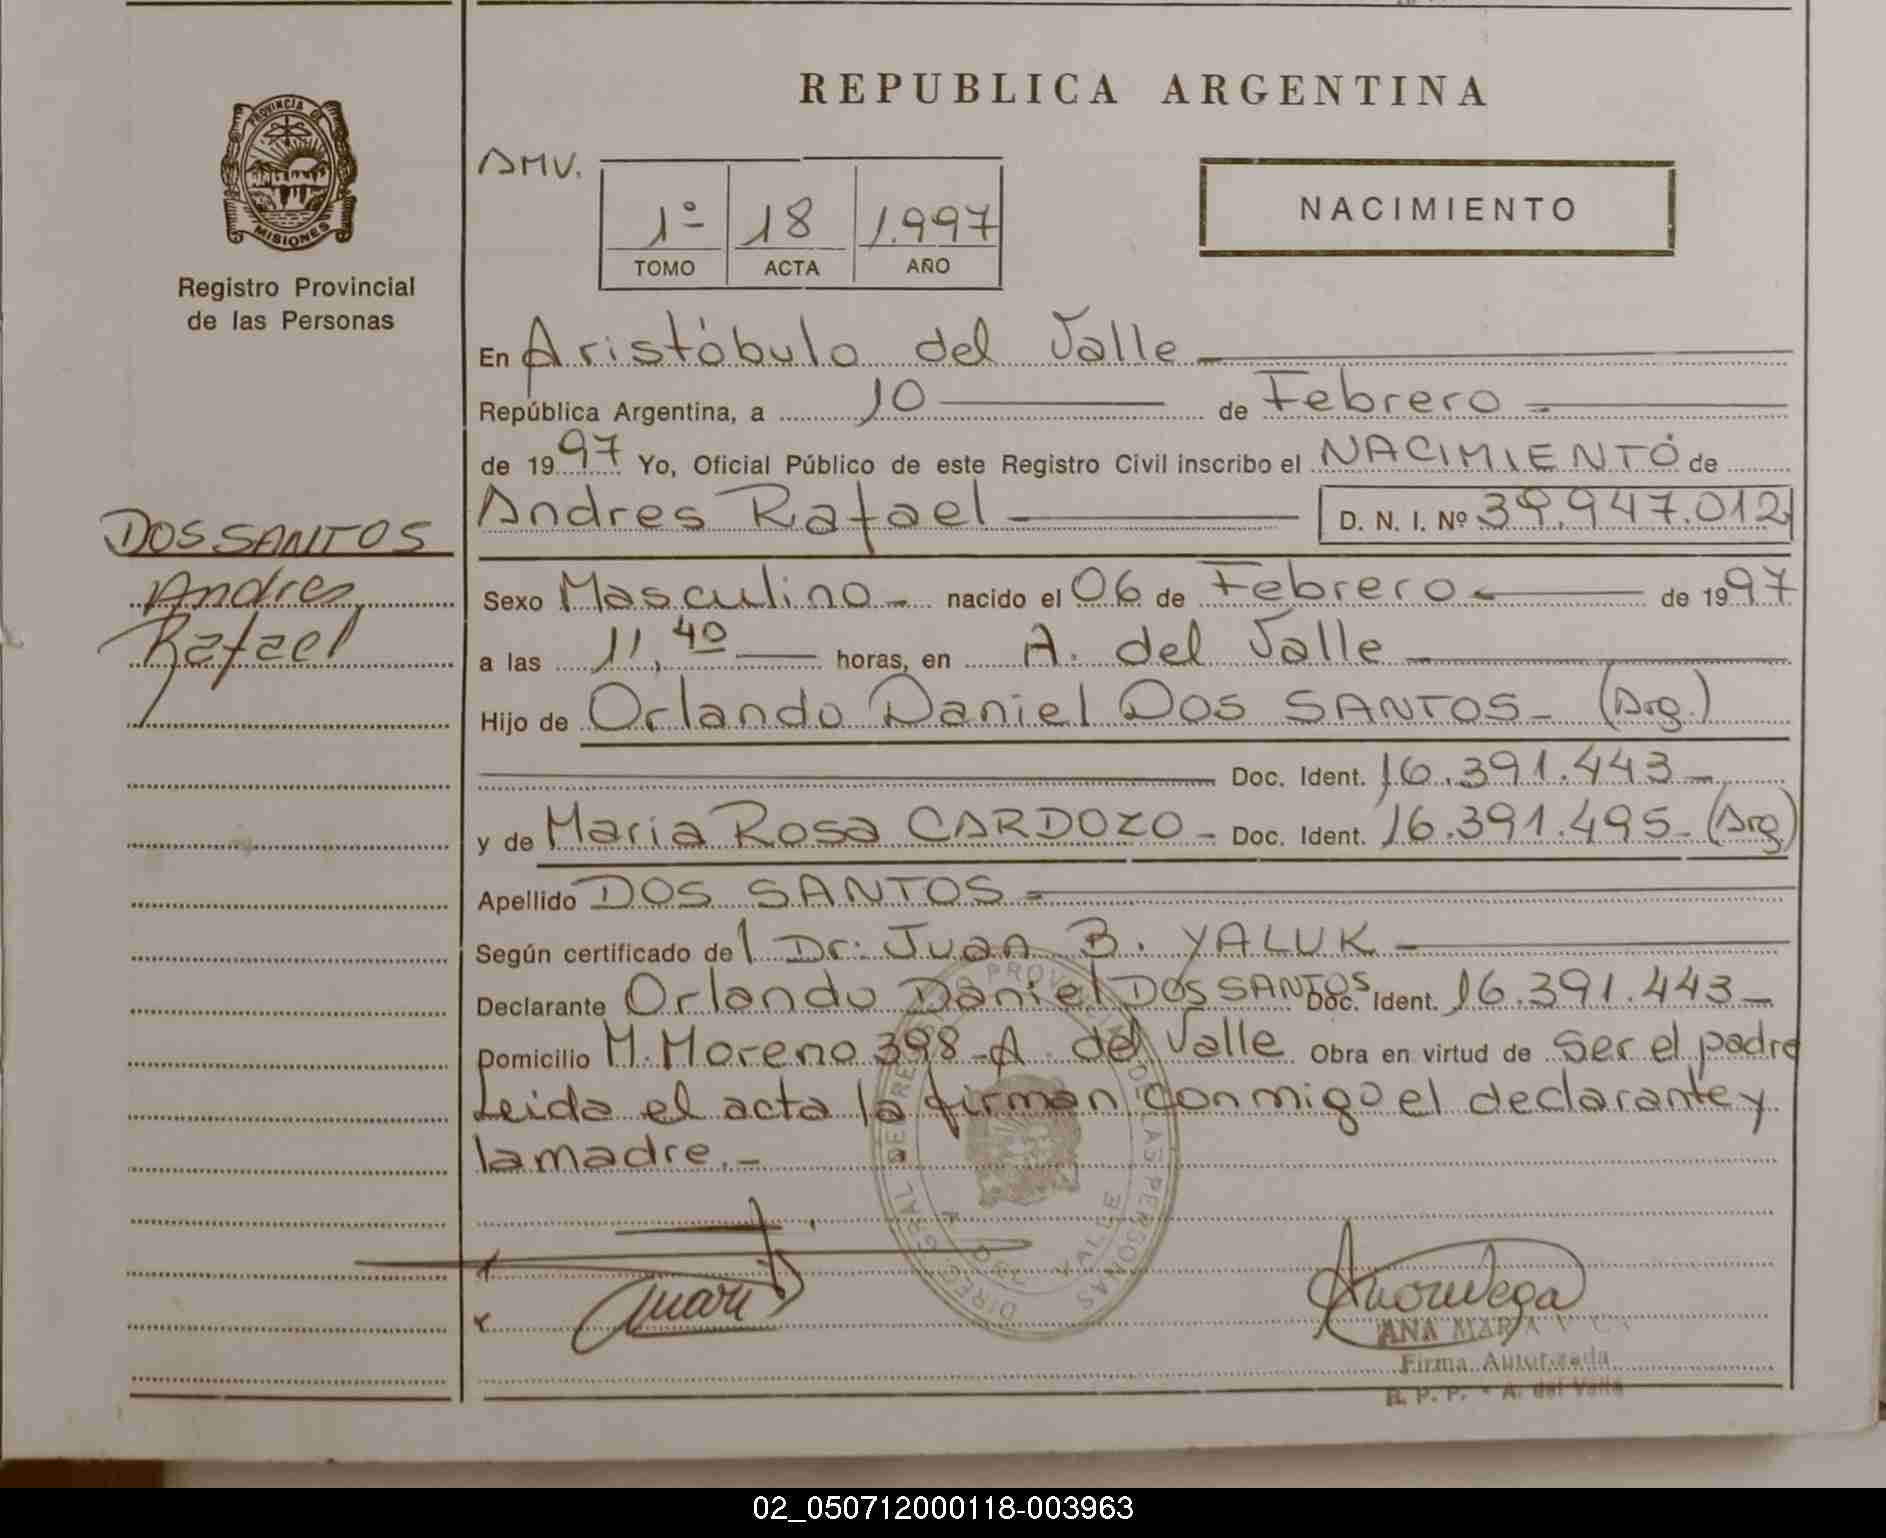 REPUBLICA ARGENTINA
PROVINCIA DE
MISIONES
Registro Provincial
de las Personas
AMV.
1º 18 1.997
TOMO ACTA AÑO
NACIMIENTO
En Aristóbulo del Valle
República Argentina, a 10 de Febrero
de 1997 Yo, Oficial Público de este Registro Civil inscribo el NACIMIENTO de
Andres Rafael D. N. I. Nº 39.947.012
DOS SANTOS
Andres
Rafael
Sexo Masculino nacido el 06 de Febrero de 1997
a las 11,40 horas, en A. del Valle
Hijo de Orlando Daniel DOS SANTOS (Arg.)
Doc. Ident. 16.391.443
y de Maria Rosa CARDOZO Doc. Ident. 16.391.495 (Arg)
Apellido DOS SANTOS
Según certificado del Dr: Juan B. YALUK
Declarante Orlando Daniel DOS SANTOS Doc. Ident. 16.391.443
Domicilio M. Moreno 398 - A. del Valle Obra en virtud de Ser el padre
Leida el acta la firman conmigo el declarante y
la madre.-
DE LAS PERSONAS
VALLE
ANA MARIA
Firma Autorizada
R. P. P. - A. del Valle
02_050712000118-003963